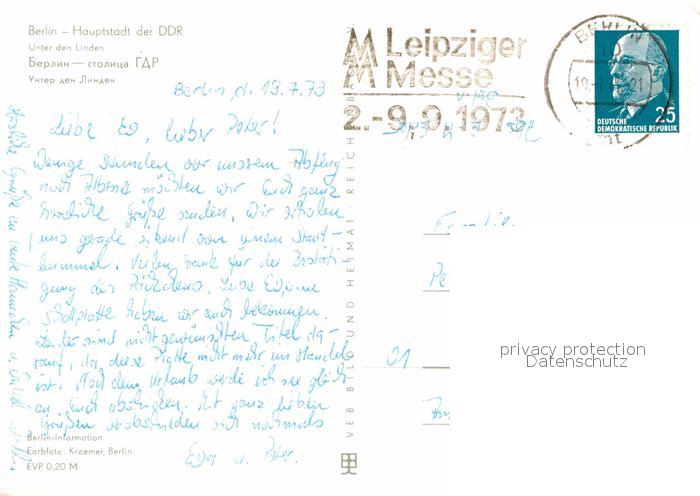 Berlin – Hauptstadt der DDR
Unter den Linden
Берлин — столица ГДР
Унтер ден Линден
Leipziger
Messe
2.-9.9.1973
BERLIN
DEUTSCHE
DEMOKRATISCHE REPUBLIK
25
Berlin, d. 19.7.73
Liebe Eva, lieber Peter!
Wenige Stunden vor unserem Abflug
nach möchten wir Euch ganz
herzliche Grüße senden. Wir erholen
uns gerade sitzend von einem Stadt-
bummel. Vielen Dank für die Bestäti-
gung des Päckchens. Liebe
Schallplatte haben wir auch bekommen.
Leider sind nicht gewünschten Titel da-
rauf, da diese Platte nicht mehr im Handel
ist. Nach dem Urlaub werde ich sie gleich
an Euch abschicken. Mit ganz lieben
Grüßen verabschieden sich nochmals
u. Peter.
Herzliche Grüße an
Familie
01
VEB BILD UND HEIMAT REICHENBACH
privacy protection
Datenschutz
Berlin-Information
Farbfoto: Kraemer, Berlin
EVP 0,20 M